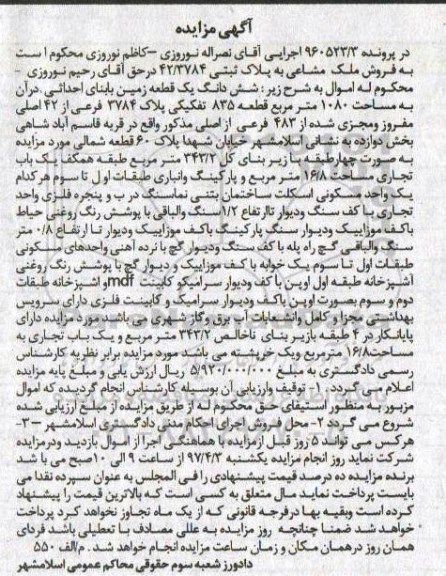 آگهی مزایده
در پرونده ۹۶۰۵۲۳/۳ اجرایی آقای نصراله نوروزی –کاظم نوروزی محکوم است
به فروش ملک مشاعی به پلاک ثبتی ۴۲/۳۷۸۴ درحق آقای رحیم نوروزی –
محکوم له اموال به شرح زیر: شش دانگ یک قطعه زمین بابنای احداثی درآن
به مساحت ۱۰۸۰ متر مربع قطعه ۸۳۵ تفکیکی پلاک ۳۷۸۴ فرعی از ۴۲ اصلی
مفروز ومجزی شده از ۴۸۳ فرعی از اصلی مذکور واقع در قریه قاسم آباد شاهی
بخش دوازده به نشانی اسلامشهر خیابان شهدا پلاک ۶۰ قطعه شمالی مورد مزایده
به صورت چهارطبقه با زیر بنای کل ۳۴۳/۲ متر مربع طبقه همکف یک باب
تجاری مساحت ۱۶/۸ متر مربع و پارکینگ وانباری طبقات اول تا سوم هرکدام
یک واحد مسکونی اسکلت ساختمان بتنی نماسنگ درب و پنجره فلزی واحد
تجاری با کف سنگ ودیوار تاارتفاع ۱/۲ سنگ والباقی با پوشش رنگ روغنی حیاط
باکف موزاییک ودیوار سنگ پارکینگ باکف موزاییک ودیوار تا ارتفاع ۰/۸ متر
سنگ والباقی گچ راه پله با کف سنگ ودیوار گچ با نرده آهنی واحدهای مسکونی
طبقات اول تا سوم یک خوابه با کف موزاییک و دیوار گچ با پوشش رنگ روغنی
آشپزخانه طبقه اول اوپن با کف ودیوار سرامیکو کابینت mdf واشپزخانه طبقات
دوم و سوم بصورت اوپن باکف ودیوار سرامیک و کابینت فلزی دارای سرویس
بهداشتی مجزا و کامل وانشعابات آب برق وگاز شهری می باشد مورد مزایده دارای
پایانکار در ۴ طبقه بازیر بنای ناخالص ۳۴۳/۲ متر مربع و یک باب تجاری به
مساحت۱۶/۸ مترمربع ویک خرپشته می باشد مورد مزایده برابر نظریه کارشناس
رسمی دادگستری به مبلغ ۵/۹۳۰/۰۰۰/۰۰۰ ریال ارزش یابی و مبلغ پایه مزایده
اعلام می گردد، ۱- توقیف وارزیابی آن بوسیله کارشناس انجام گردیده که اموال
مزبور به منظور استیفای حق محکوم له از طریق مزایده از مبلغ ارزیابی شده
شروع می گردد ۲- محل فروش اجرای احکام مدنی دادگستری اسلامشهر -۳-
هرکس می تواند ۵ روز قبل ازمزایده با هماهنگی اجرا از اموال بازدید ودرمزایده
شرکت نماید روز انجام مزایده یکشنبه ۹۷/۴/۳ از ساعت ۹ الی ۱۰صبح می با شد
برنده مزایده ده درصد قیمت پیشنهادی را فی المجلس به عنوان سپرده نقدا می
بایست پرداخت نماید مال متعلق به کسی است که بالاترین قیمت را پیشنهاد
کرده است وبقیه بها درفرجه قانونی که از یک ماه تجاوز نخواهد کرد پرداخت
خواهد شد ضمنا چنانچه روز مزایده به عللی مصادف با تعطیلی باشد فردای
همان روز درهمان مکان و زمان ساعت مزایده انجام خواهد شد . م/الف ۵۵۰
دادورز شعبه سوم حقوقی محاکم عمومی اسلامشهر